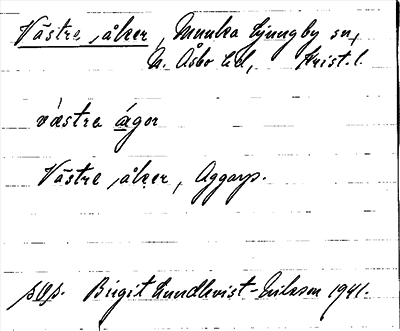 Västre åker, Munka Ljungby sn,
N. Åsbo hd, Krist. l.
væstre ágor
Västre åker, Aggarp.
Birgit Lundkvist-Erikson 1941.